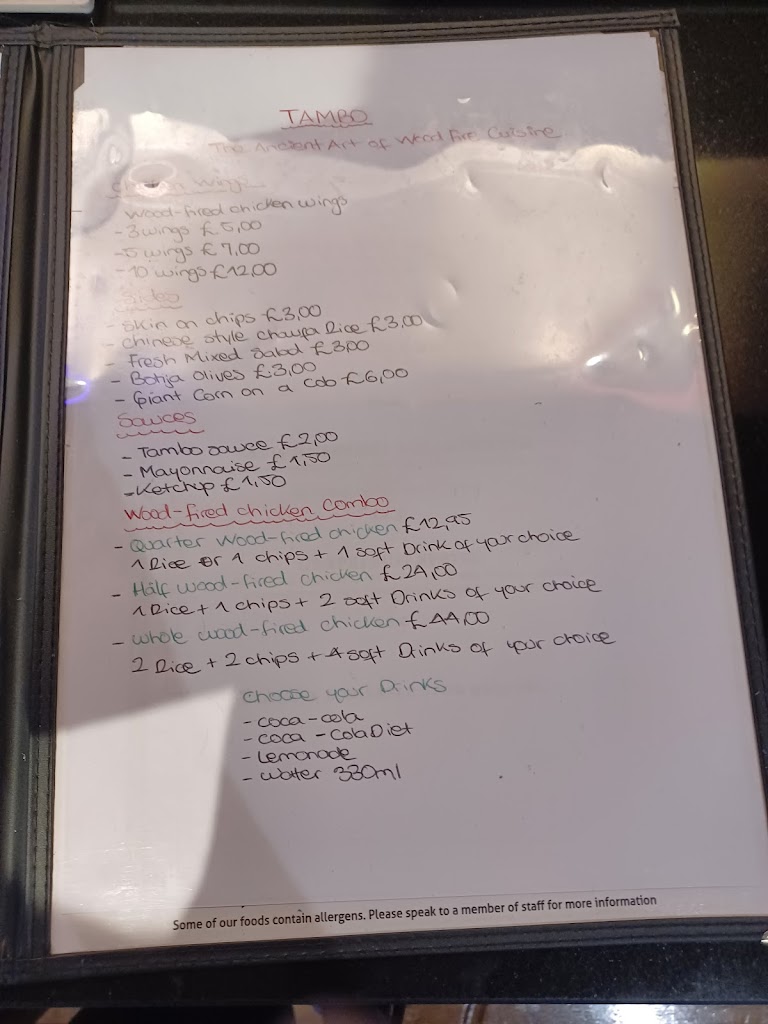 TAMBO
The Ancient Art of Wood Fire Cuisine
Chicken Wings
Wood-fired chicken wings
- 3 wings £5,00
- 5 wings £7,00
- 10 wings £12,00
Sides
- Skin on chips £3,00
- Chinese style chaufa Rice £3,00
- Fresh Mixed Salad £3,00
- Botija Olives £3,00
- Giant Corn on a Cob £6,00
Sauces
- Tambo sauce £2,00
- Mayonnaise £1,50
- Ketchup £1,50
Wood-fired chicken Combo
- Quarter Wood-fired chicken £12,95
1 Rice or 1 chips + 1 soft Drink of your choice
- Half wood-fired chicken £24,00
1 Rice + 1 chips + 2 soft Drinks of your choice
- Whole wood-fired chicken £44,00
2 Rice + 2 chips + 4 soft Drinks of your choice
Choose your Drinks
- coca-cola
- coca-cola Diet
- Lemonade
- Water 330ml
Some of our foods contain allergens. Please speak to a member of staff for more information